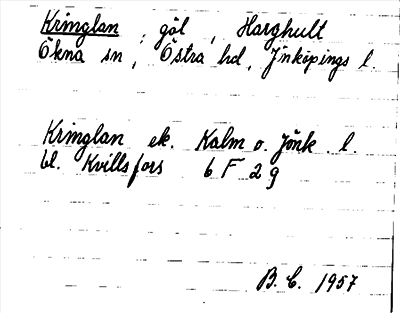 Kringlan, göl, Harghult
Ökna sn, Östra hd, Jönköpings l.
Kringlan ek. Kalm o. Jönk. l.
bl. Kvillsfors 6 F 2 g
B. C. 1957